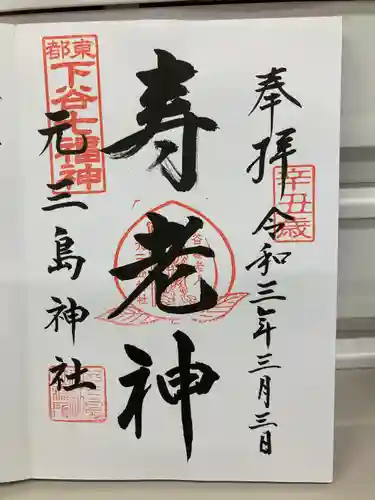 奉拝
辛丑歳
令和三年三月三日
寿老神
東都
下谷七福神
元三島神社